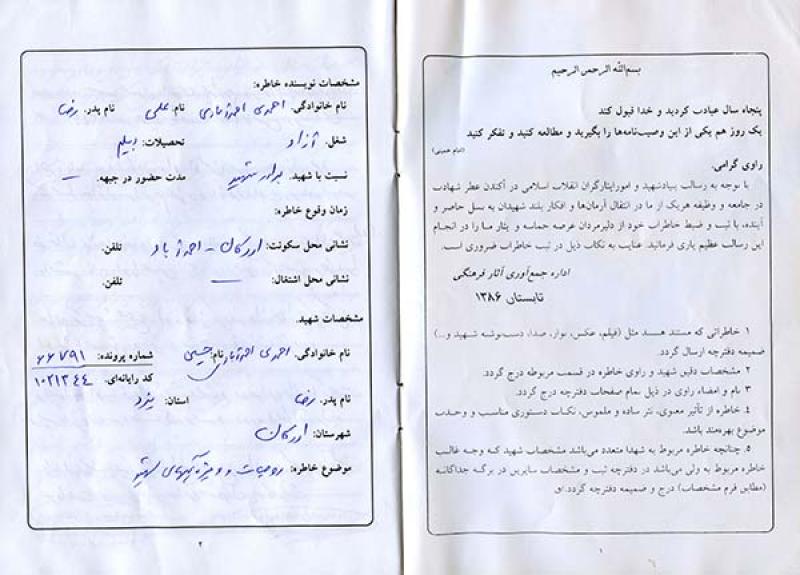 بسم‌الله الرحمن الرحیم
پنجاه سال عبادت کردید و خدا قبول کند
یک روز هم یکی از این وصیت‌نامه‌ها را بگیرید و مطالعه کنید و تفکر کنید
(امام خمینی)
راوی گرامی.
با توجه به رسالت بنیادشهید و امورایثارگران انقلاب اسلامی در آکندن عطر شهادت
در جامعه و وظیفه هریک از ما در انتقال آرمان‌ها و افکار بلند شهیدان به نسل حاضر و
آینده، با ثبت و ضبط خاطرات خود از دلیرمردان عرصه حماسه و ایثار ما را در انجام
این رسالت عظیم یاری فرمائید. عنایت به نکات ذیل در ثبت خاطرات ضروری است.
اداره جمع‌آوری آثار فرهنگی
تابستان ۱۳۸۶
۱. خاطراتی که مستند هستند مثل (فیلم، عکس، نوار، صدا، دست‌نوشته شهید و...)
ضمیمه دفترچه ارسال گردد.
۲. مشخصات دقیق شهید و راوی خاطره در قسمت مربوطه درج گردد.
۳. نام و امضاء راوی در ذیل تمام صفحات دفترچه درج گردد.
۴. خاطره از تأثیر معنوی، نثر ساده و ملموس، نکات دستوری مناسب و وحدت
موضوع بهره‌مند باشد.
۵. چنانچه خاطره مربوط به شهدا متعدد می‌باشد مشخصات شهید که وجه غالب
خاطره مربوط به ولی می‌باشد در دفترچه ثبت و مشخصات سایرین در برگه جداگانه
(مطابق فرم مشخصات) درج و ضمیمه دفترچه گردد.
۱
مشخصات نویسنده خاطره:
نام خانوادگی. احمدی احمدآبادی نام. علی نام پدر. رضا
شغل. آزاد تحصیلات: دیپلم
نسبت با شهید. برادر شهید مدت حضور در جبهه. —
زمان وقوع خاطره:
نشانی محل سکونت: اردکان - احمدآباد تلفن.
نشانی محل اشتغال: — تلفن:
مشخصات شهید.
نام خانوادگی: احمدی احمدآبادی نام: شماره پرونده: ۶۶۷۹۱
کد رایانه‌ای. ۱۰۲۱۳۴۴
نام پدر. رضا استان: یزد
شهرستان: اردکان
موضوع خاطره: روحیات و ویژگیهای شهید
۲